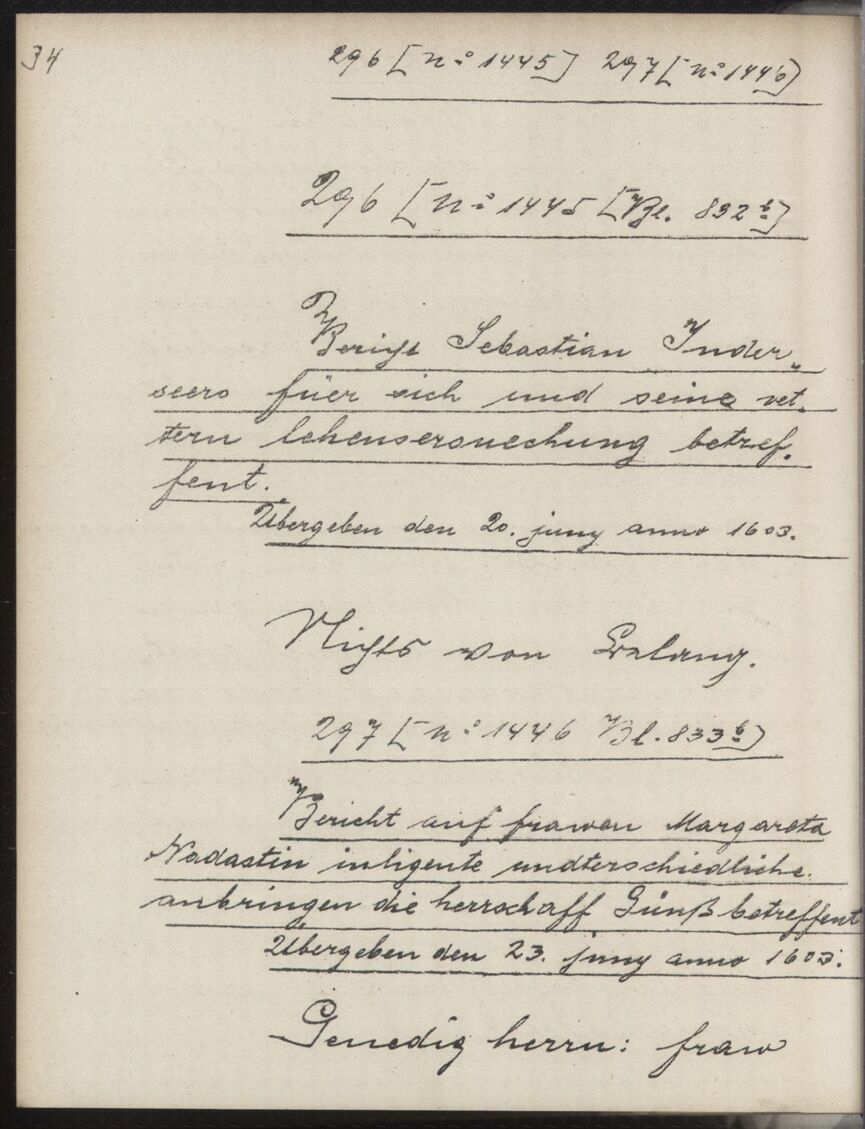 34
296 [n° 1445] 297 [n° 1446]
296 [n° 1445 [Bl. 832 b]
Bericht Sebastian Inder„
seers füer sich und seine vet„
tern lehensersuechung betref„
fent.
Übergeben den 20. juny anno 1603.
Nichts von Belang.
297 [n° 1446 Bl. 833 b]
Bericht auf frawen Margareta
Nadastin inligente undterschiedliche
anbringen die herrschaff Günß betreffent
Übergeben den 23. juny anno 1603.
Genedig herrn: fraw